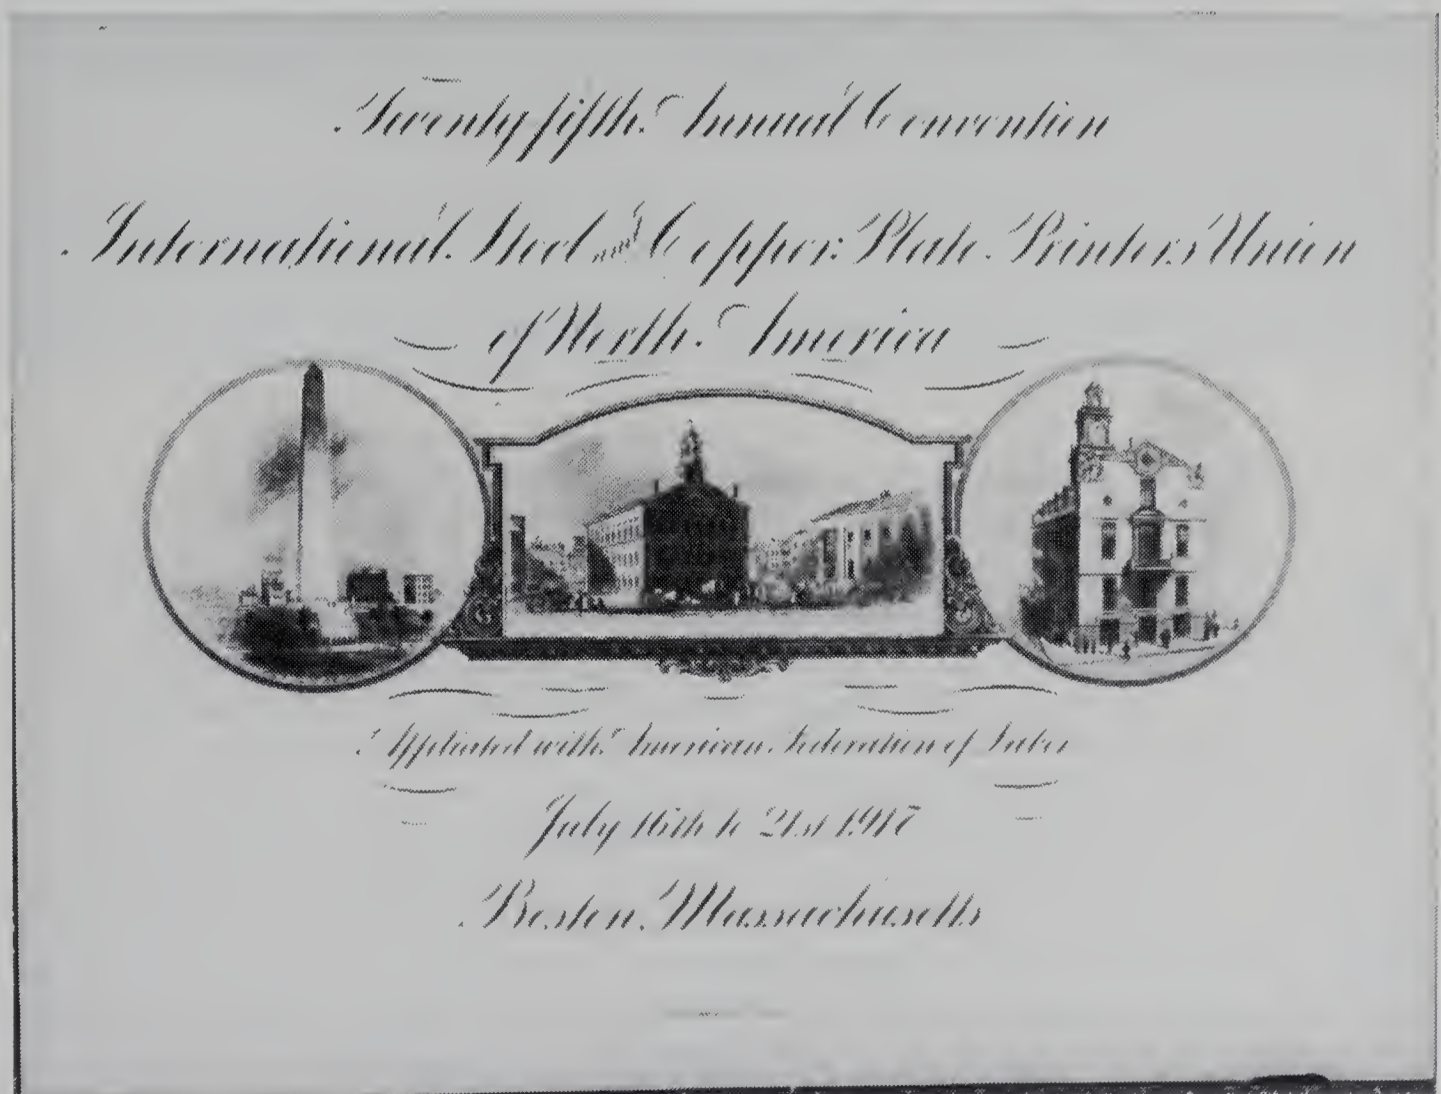 Twenty fifth Annual Convention
International Steel and Copper Plate Printers' Union
of North America
Affiliated with American Federation of Labor
July 16th to 21st 1917
Boston, Massachusetts